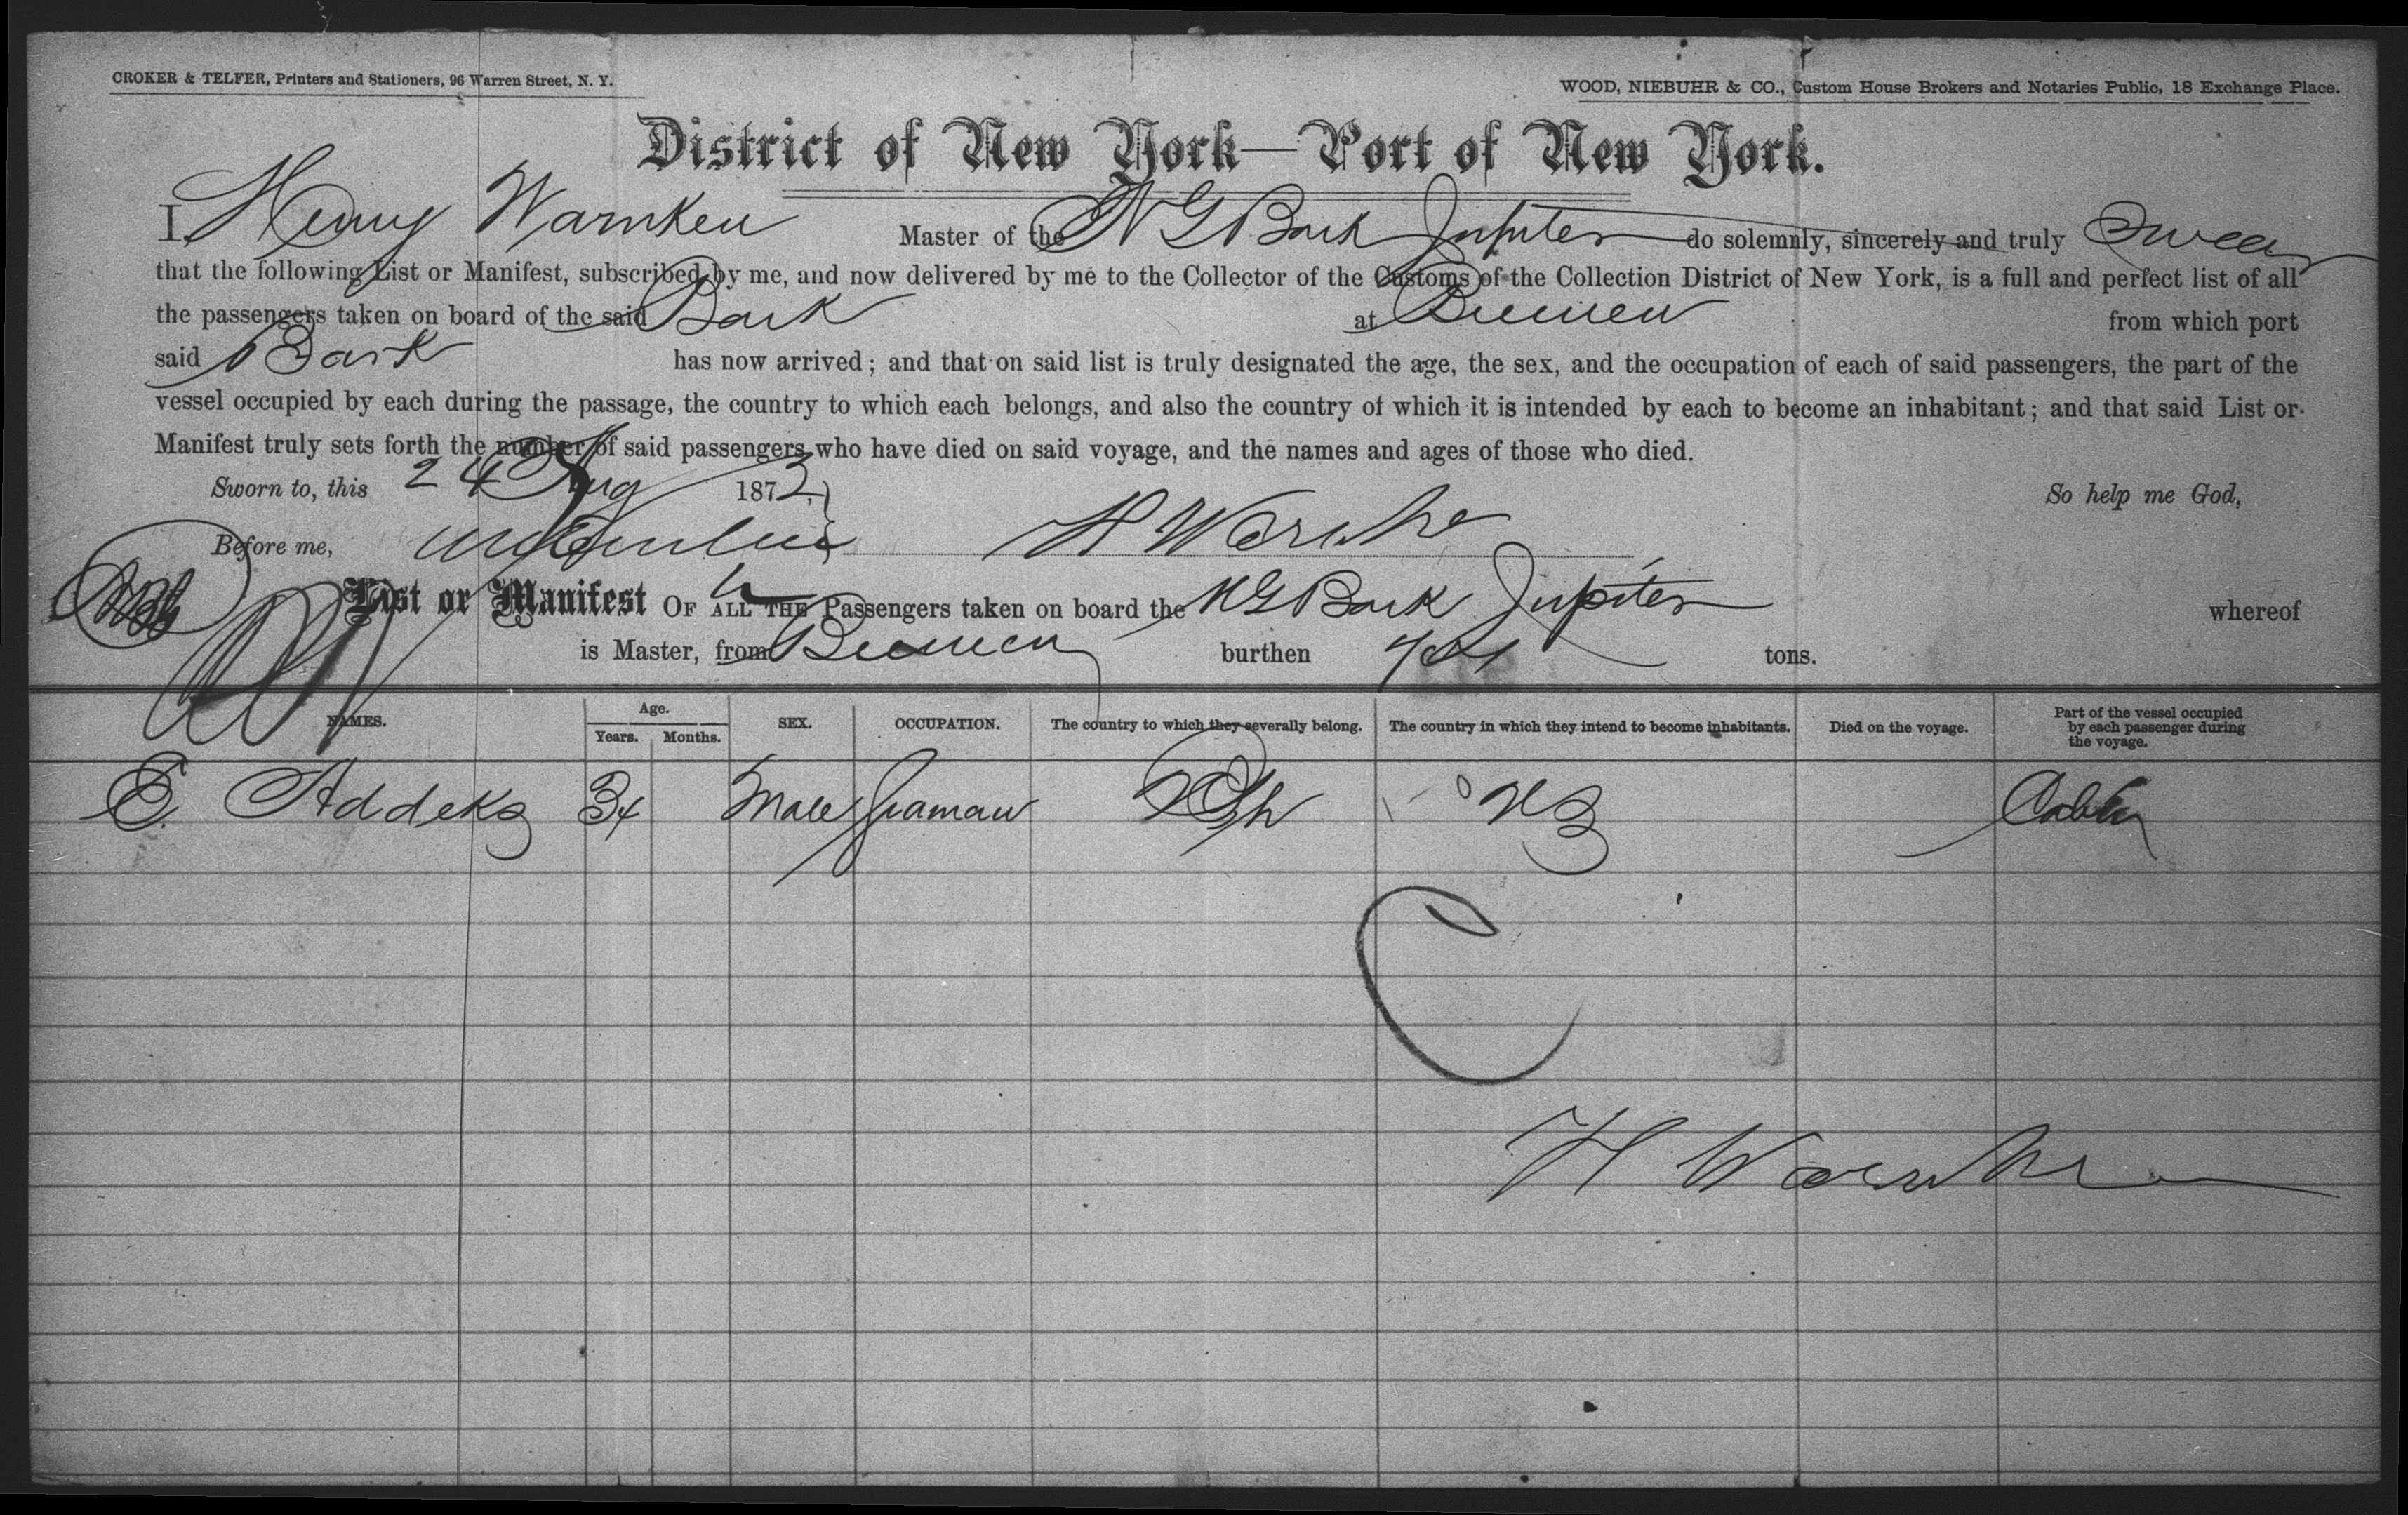 CROKER & TELFER, Printers and Stationers, 96 Warren Street, N. Y.
WOOD, NIEBUHR & CO., Custom House Brokers and Notaries Public, 18 Exchange Place.
District of New York—Port of New York.
I, Henry Warnken Master of the N G Bark Jupiter do solemnly, sincerely and truly Swear
that the following List or Manifest, subscribed by me, and now delivered by me to the Collector of the Customs of the Collection District of New York, is a full and perfect list of all
the passengers taken on board of the said Bark at Bremen from which port
said Bark has now arrived; and that on said list is truly designated the age, the sex, and the occupation of each of said passengers, the part of the
vessel occupied by each during the passage, the country to which each belongs, and also the country of which it is intended by each to become an inhabitant; and that said List or
Manifest truly sets forth the number of said passengers who have died on said voyage, and the names and ages of those who died.
Sworn to, this 24 Aug 1872, So help me God,
Before me, H Warnke
List or Manifest OF ALL THE Passengers taken on board the N G Bark Jupiter whereof
is Master, from Bremen burthen tons.
NAMES. Age. Years. Months. SEX. OCCUPATION. The country to which they severally belong. The country in which they intend to become inhabitants. Died on the voyage. Part of the vessel occupied by each passenger during the voyage.
E. Addeks 34 Male Seaman Cabin
C
H Warnke